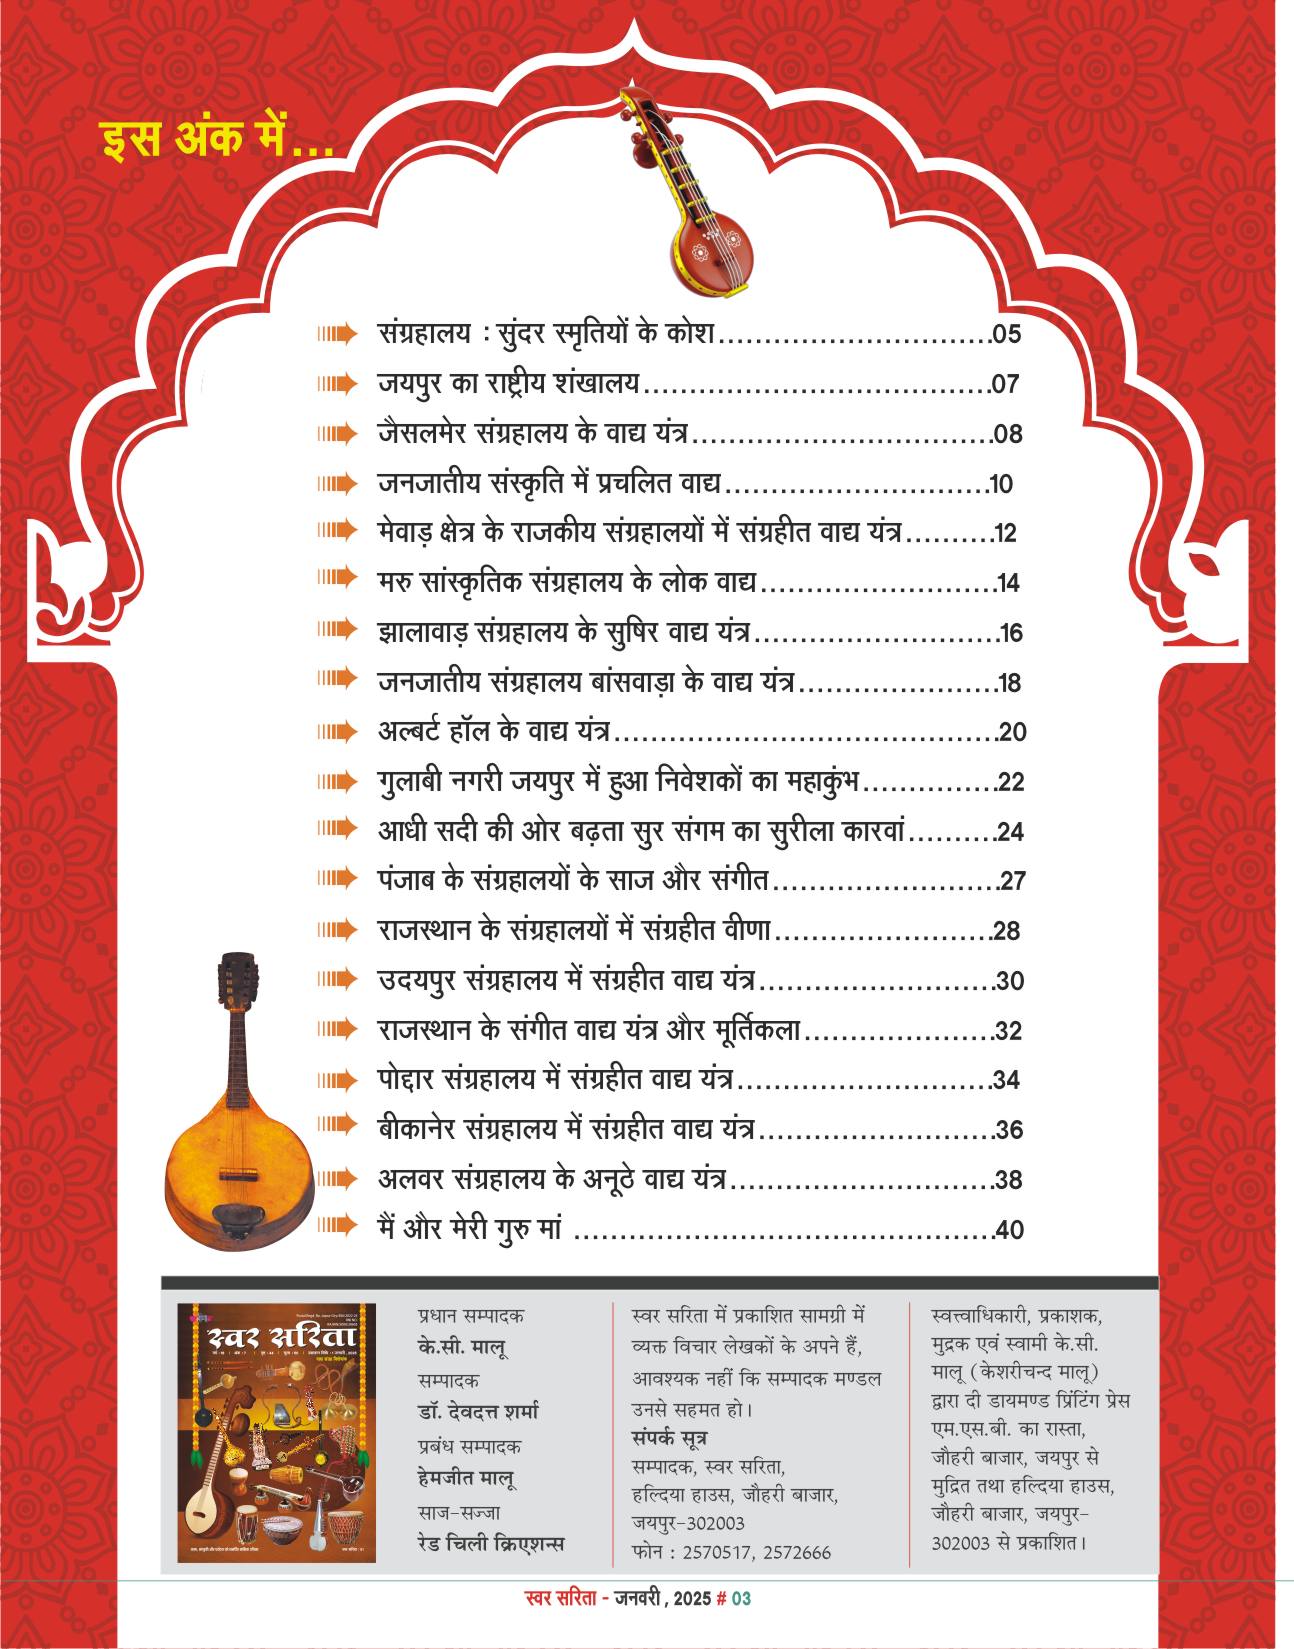 इस अंक में...
संग्रहालय : सुंदर स्मृतियों के कोश..............................05
जयपुर का राष्ट्रीय शंखालय......................................07
जैसलमेर संग्रहालय के वाद्य यंत्र.................................08
जनजातीय संस्कृति में प्रचलित वाद्य.............................10
मेवाड़ क्षेत्र के राजकीय संग्रहालयों में संग्रहीत वाद्य यंत्र..........12
मरु सांस्कृतिक संग्रहालय के लोक वाद्य..........................14
झालावाड़ संग्रहालय के सुषिर वाद्य यंत्र...........................16
जनजातीय संग्रहालय बांसवाड़ा के वाद्य यंत्र......................18
अल्बर्ट हॉल के वाद्य यंत्र..........................................20
गुलाबी नगरी जयपुर में हुआ निवेशकों का महाकुंभ...............22
आधी सदी की ओर बढ़ता सुर संगम का सुरीला कारवां..........24
पंजाब के संग्रहालयों के साज और संगीत.........................27
राजस्थान के संग्रहालयों में संग्रहीत वीणा........................28
उदयपुर संग्रहालय में संग्रहीत वाद्य यंत्र..........................30
राजस्थान के संगीत वाद्य यंत्र और मूर्तिकला.....................32
पोद्दार संग्रहालय में संग्रहीत वाद्य यंत्र............................34
बीकानेर संग्रहालय में संग्रहीत वाद्य यंत्र..........................36
अलवर संग्रहालय के अनूठे वाद्य यंत्र.............................38
मैं और मेरी गुरु मां ..............................................40
स्वर सरिता
प्रधान सम्पादक
के.सी. मालू
सम्पादक
डॉ. देवदत्त शर्मा
प्रबंध सम्पादक
हेमजीत मालू
साज-सज्जा
रेड चिली क्रिएशन्स
स्वर सरिता में प्रकाशित सामग्री में
व्यक्त विचार लेखकों के अपने हैं,
आवश्यक नहीं कि सम्पादक मण्डल
उनसे सहमत हो।
संपर्क सूत्र
सम्पादक, स्वर सरिता,
हल्दिया हाउस, जौहरी बाजार,
जयपुर-302003
फोन : 2570517, 2572666
स्वत्त्वाधिकारी, प्रकाशक,
मुद्रक एवं स्वामी के.सी.
मालू (केशरीचन्द मालू)
द्वारा दी डायमण्ड प्रिंटिंग प्रेस
एम.एस.बी. का रास्ता,
जौहरी बाजार, जयपुर से
मुद्रित तथा हल्दिया हाउस,
जौहरी बाजार, जयपुर-
302003 से प्रकाशित।
स्वर सरिता - जनवरी, 2025 # 03